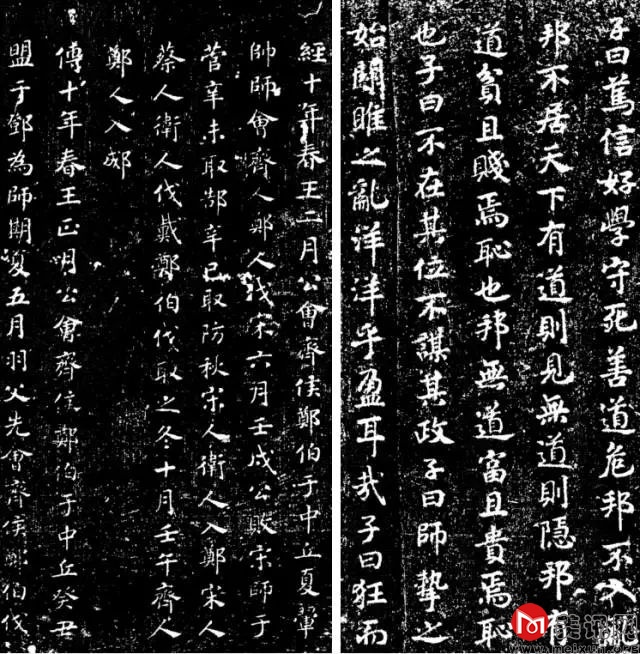 子曰篤信好學守死善道危邦不入亂
邦不居天下有道則見無道則隱邦有
道貧且賤焉恥也邦無道富且貴焉恥
也子曰不在其位不謀其政子曰師摯之
始關雎之亂洋洋乎盈耳哉子曰狂而
經十年春王二月公會齊侯鄭伯于中丘夏翬
帥師會齊人鄭人伐宋六月壬戌公敗宋師于
菅辛未取郜辛巳取防秋宋人衛人入鄭宋人
蔡人衛人伐戴鄭伯伐取之冬十月壬午齊人
鄭人入郕
傳十年春王正月公會齊侯鄭伯于中丘癸丑
盟于鄧為師期夏五月羽父先會齊侯鄭伯伐